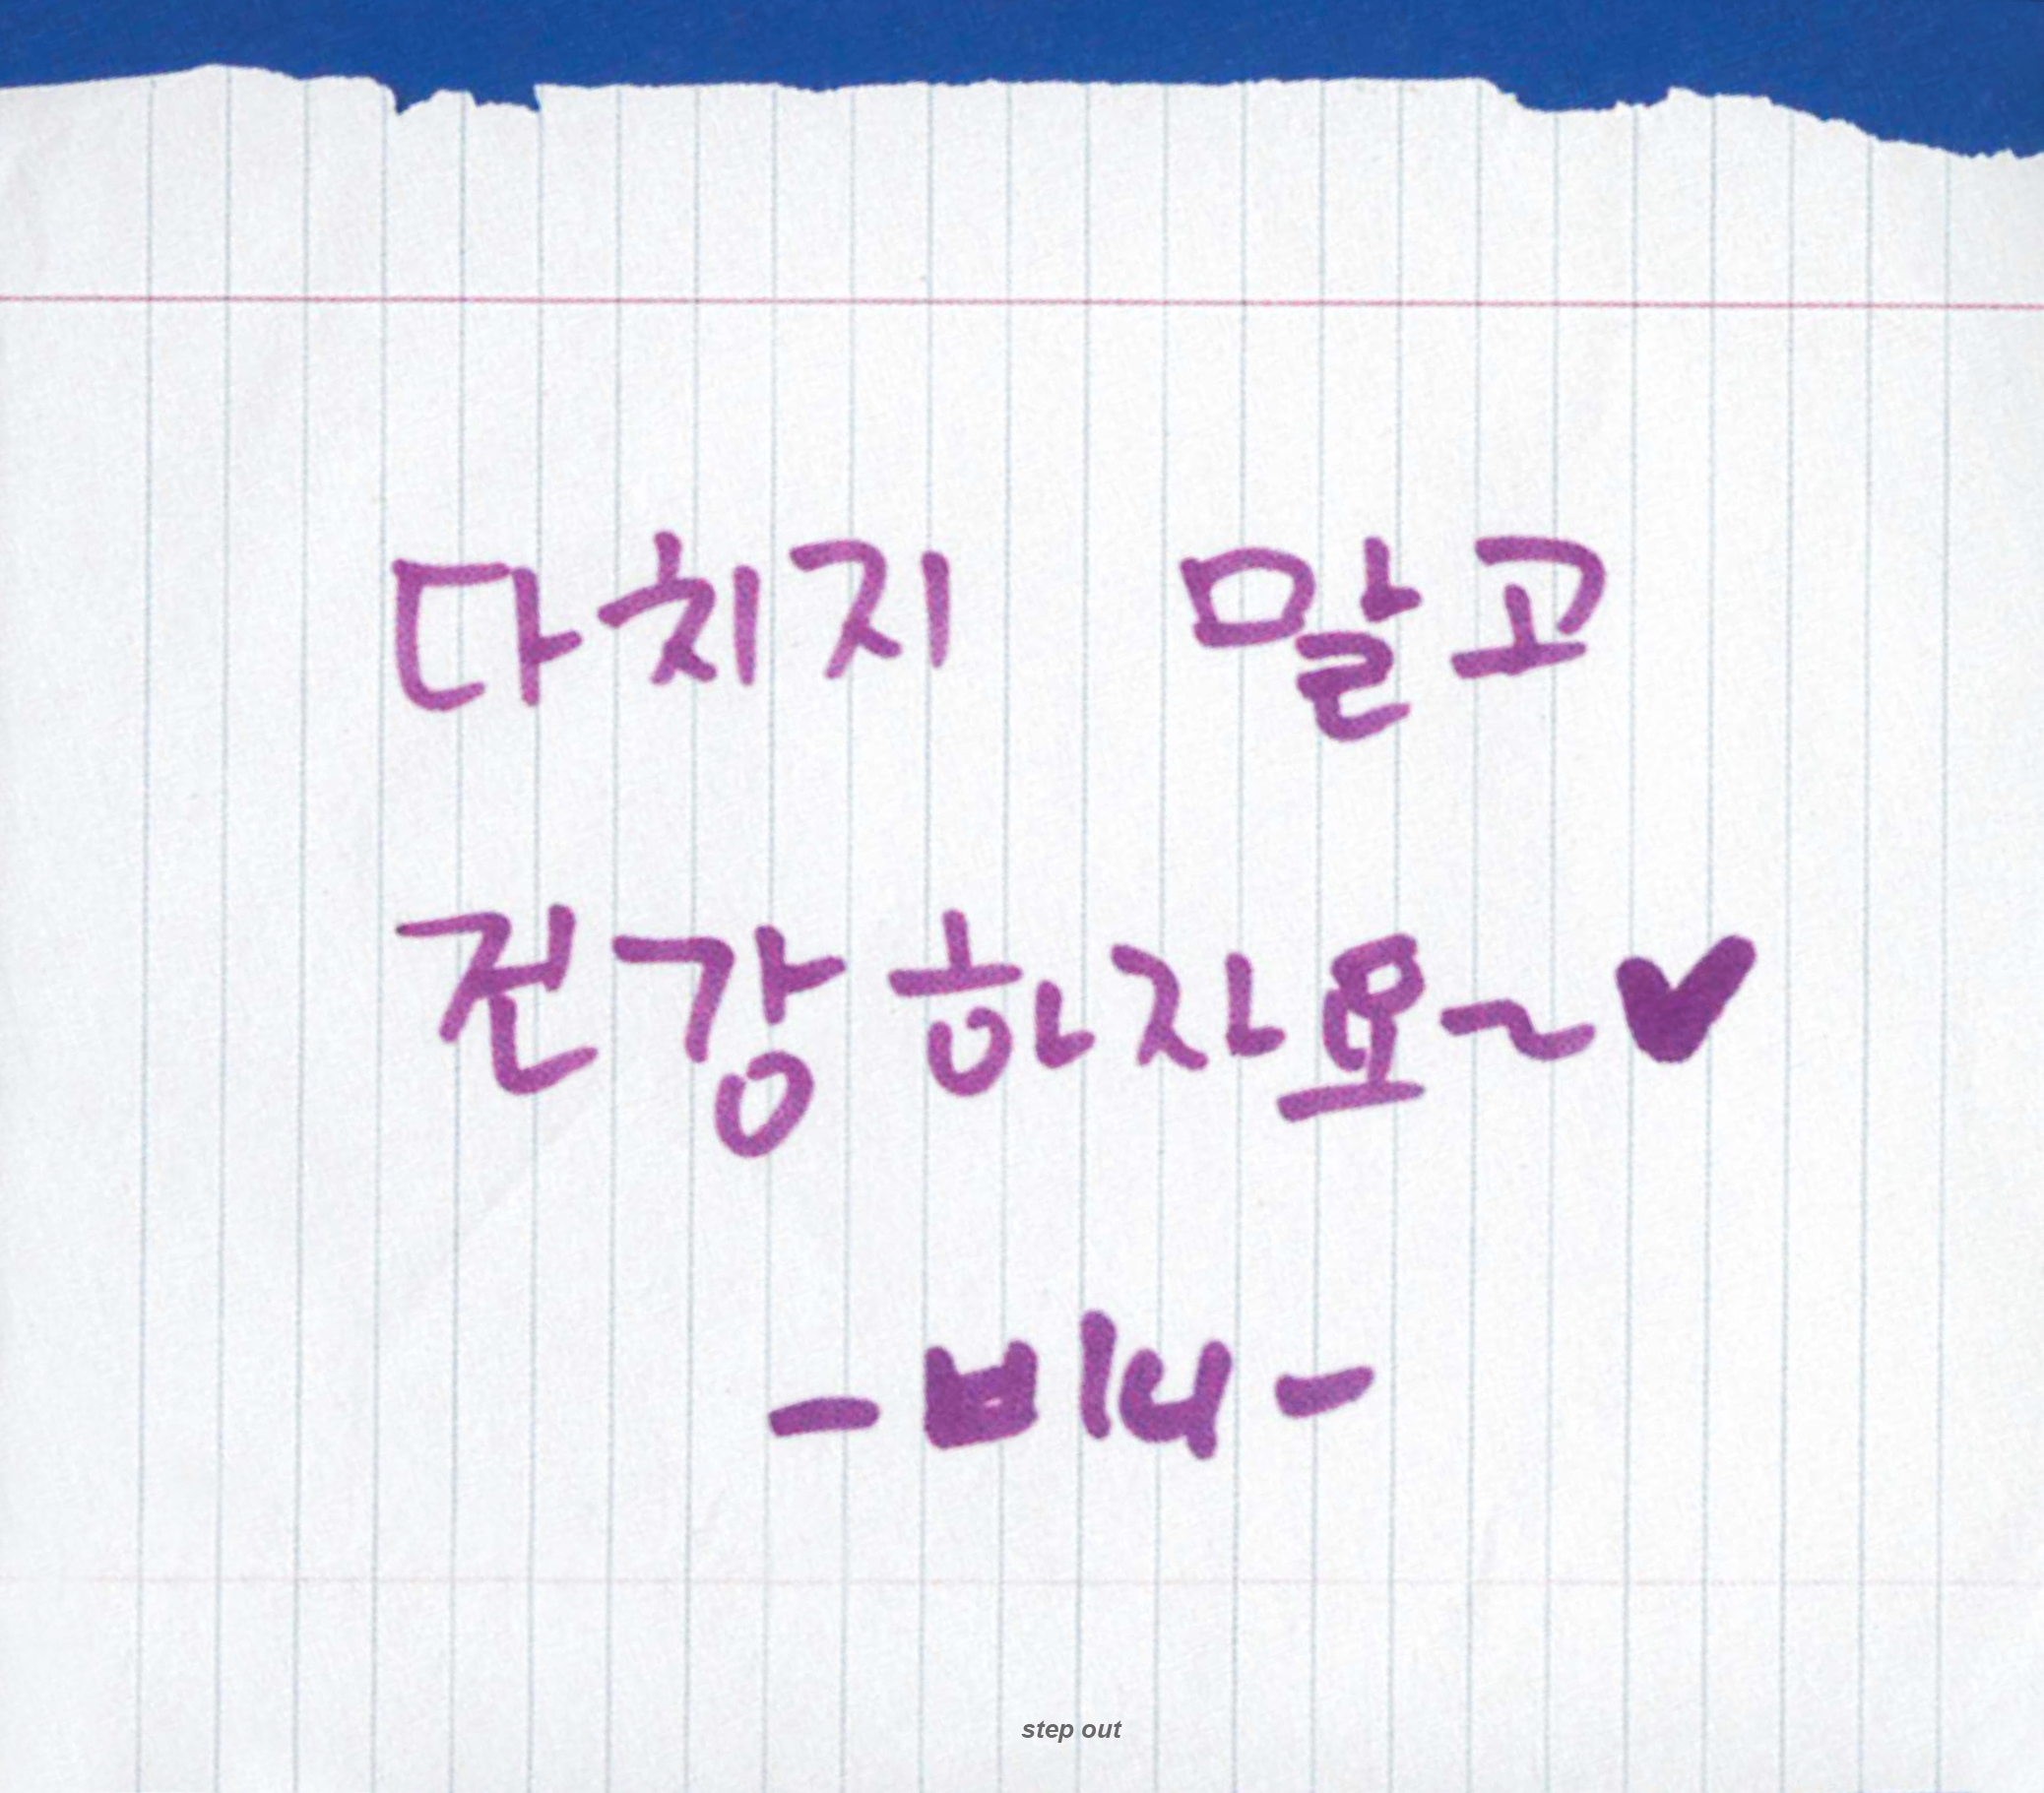 다치지 말고
건강하자요~♥
-비니-
step out